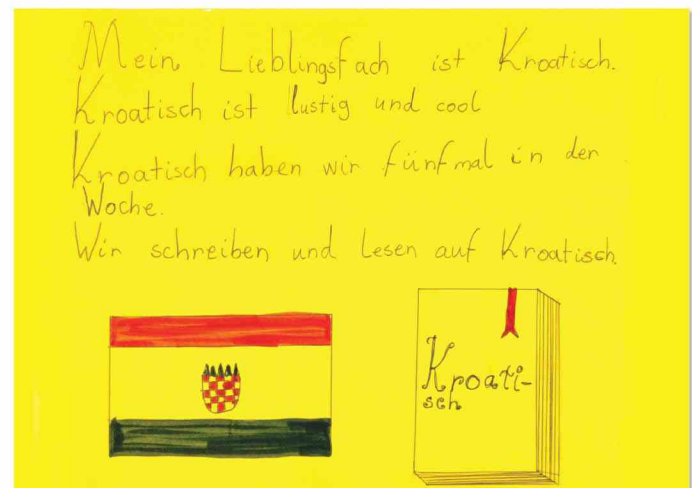 Mein Lieblingsfach ist Kroatisch.
Kroatisch ist lustig und cool
Kroatisch haben wir fünfmal in der
Woche.
Wir schreiben und Lesen auf Kroatisch.
Kroati-
sch